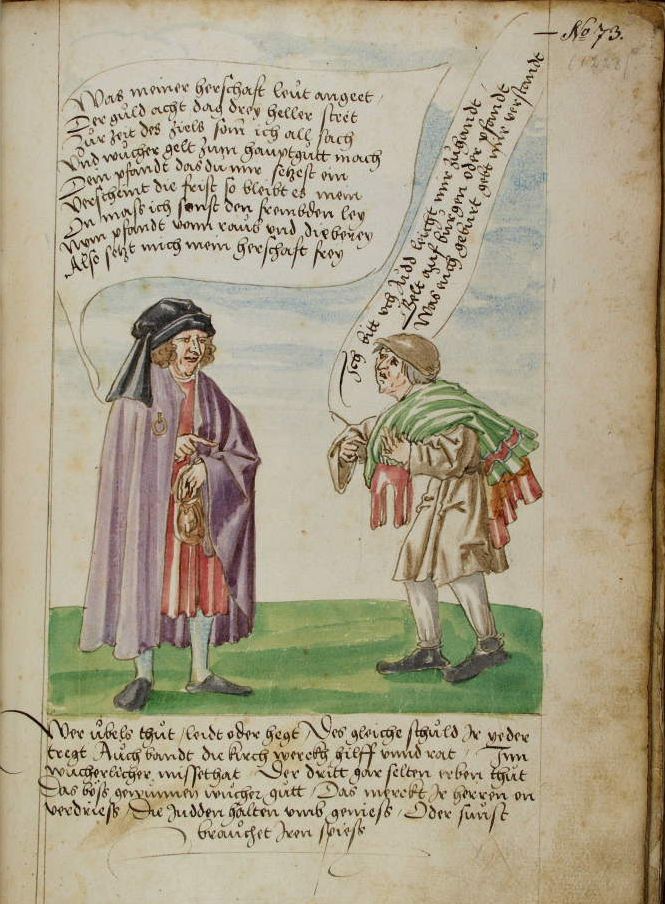 No 73.
Was meiner herschaft leut angeet,
Der guld acht dag drey heller stet
Zur zeit des ziels som ich alz sach
Und wucher gelt zum hauptgutt mach
Dem pfandt das du mir setzest ein
Verscheint die frist so bleibt es mein
On mass ich sonst den frembden ley
Nym pfandt vom raub und dieberey
Also setzt mich mein herschaft frey
Ich bitt uch Judd leicht mir zuhandt
Gelt auf burgen oder pfandt
Was euch geburt gebt mir verstandt
Wer ubels thut, leidt oder hegt Des gleiche schuld Ir yeder
tregt Auch bandt die kirch werckh hilff unnd rat, Inn
wucherlicher missethat, Der dritt gar selten erben thut
Das böss gewunnen wucher gutt, Das merckt Ir herren on
verdriess, Die Judden halten umb geniess, Oder sunst
brauchet Iren spiess